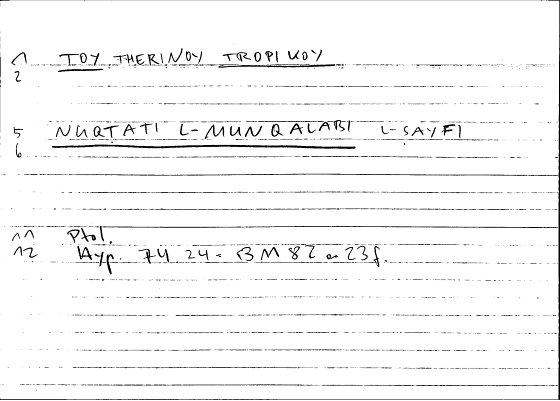 1 TOY THERINOY TROPIKOY
2
5 NUQTATI L-MUNQALABI L-SAYFI
6
11 Ptol.
12 Hyp. 74 24 = BM 82 a 23f.